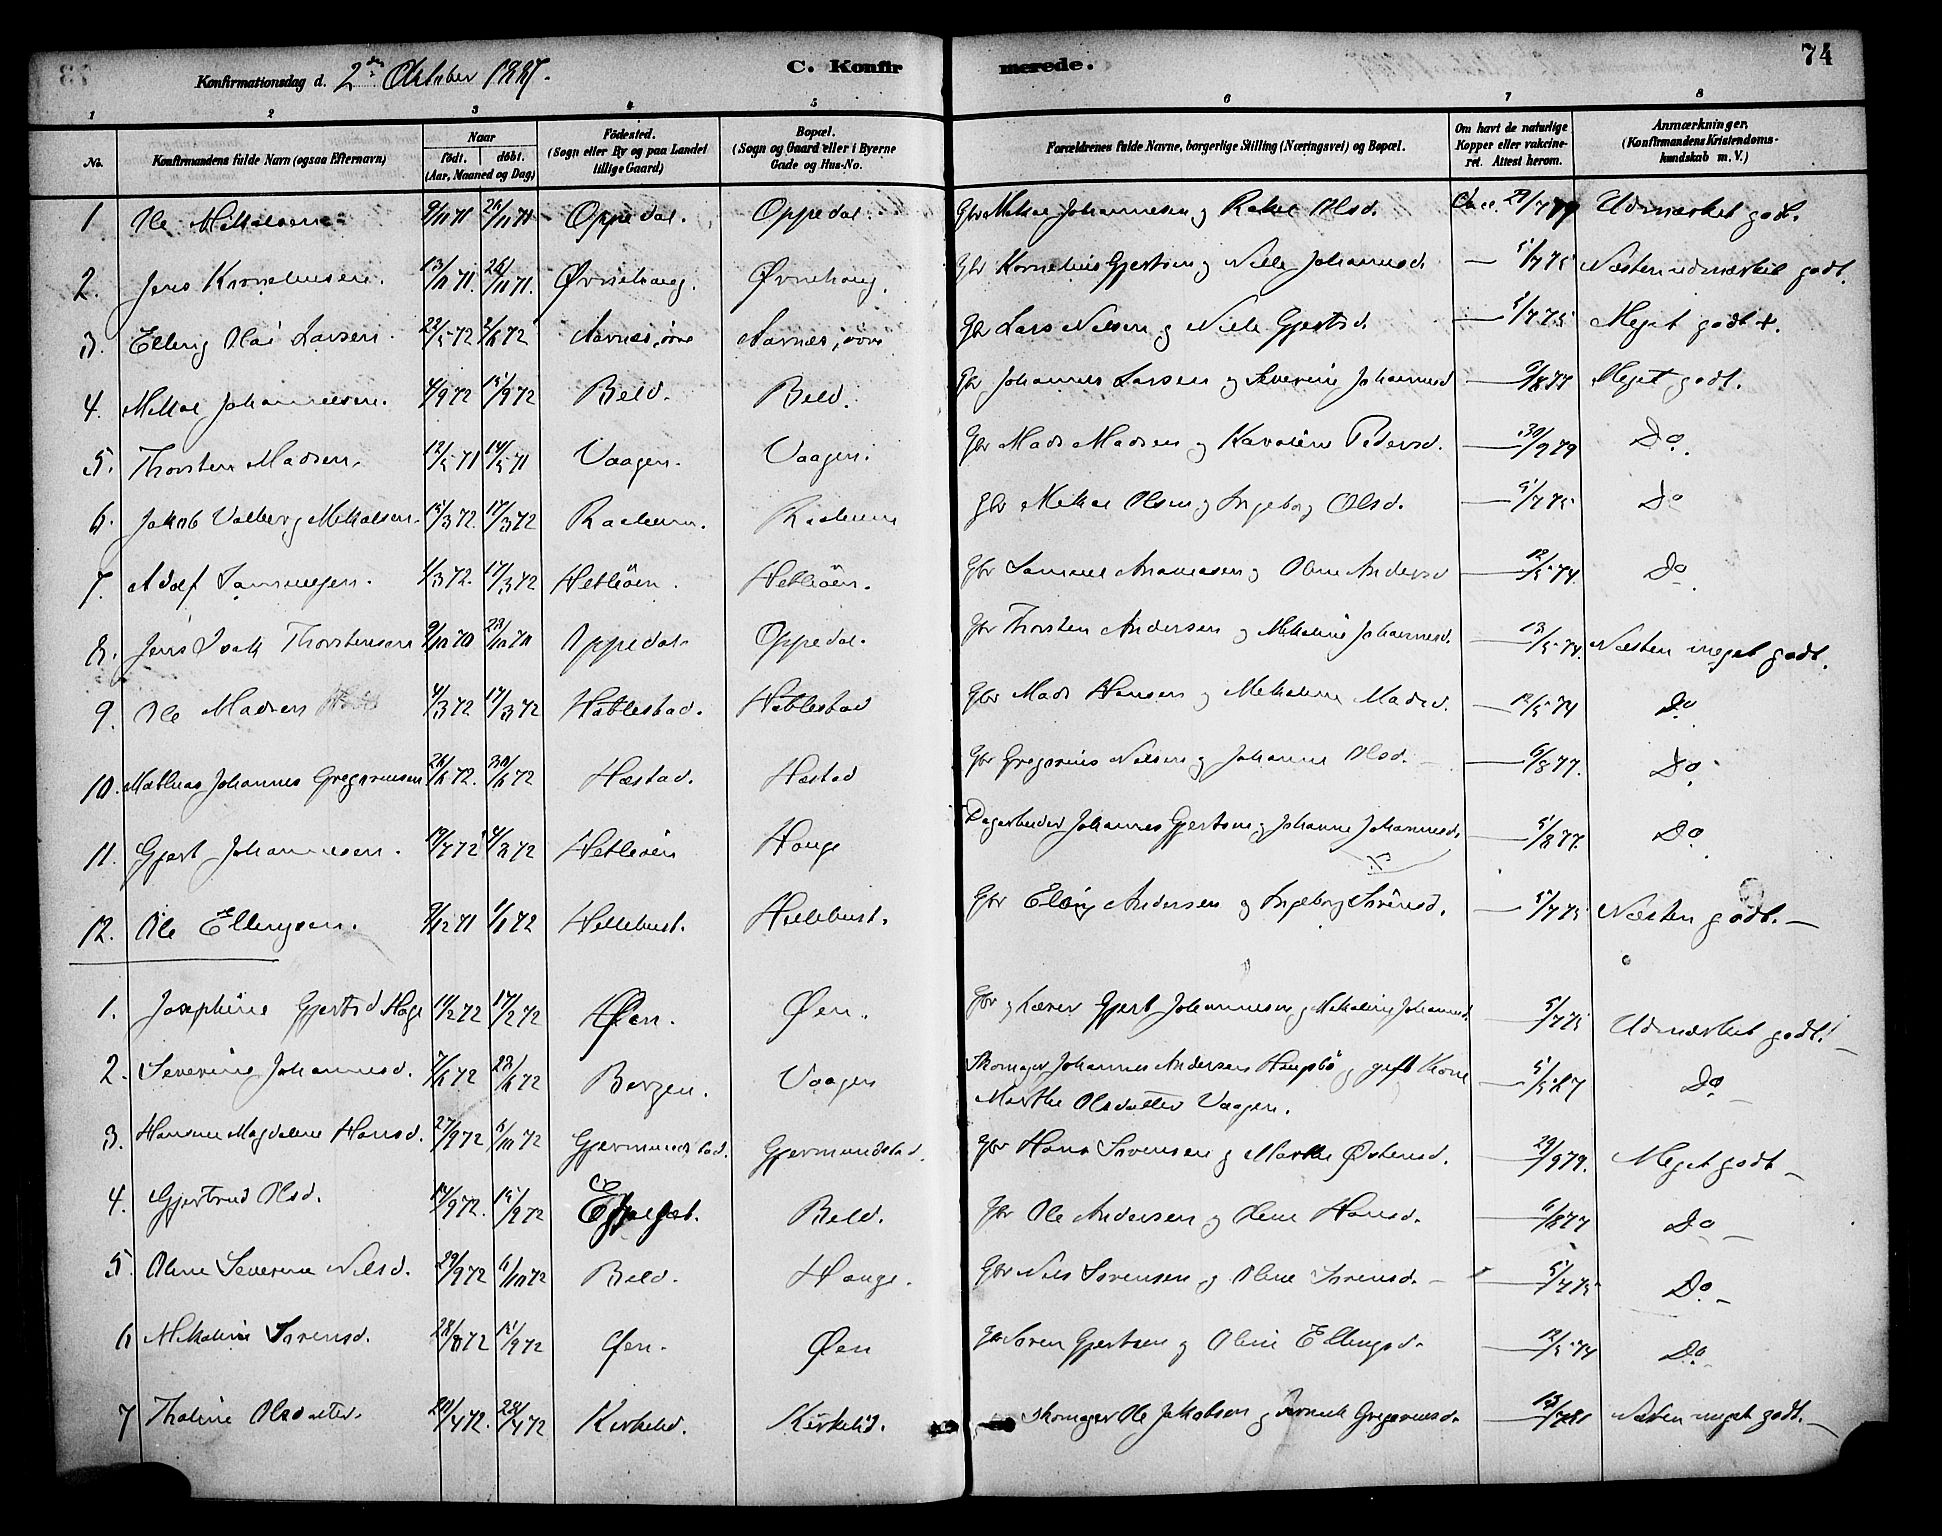 74
Konfirmationsdag d. 2den Oktober 1887.
C. Konfirmerede.
1 2 3 4 5 6 7 8
No. Konfirmandens fulde Navn (ogsaa Efternavn) Naar födt. döbt. (Aar, Maaned og Dag) Födested. (Sogn eller By og paa Landet tillige Gaard) Bopæl. (Sogn og Gaard eller i Byerne Gade og Hus-No. Forældrenes fulde Navne, borgerlige Stilling (Næringsvei) og Bopæl. Om havt de naturlige Kopper eller vakcineret. Attest herom. Anmærkninger. (Konfirmandens Kristendomskundskab m. V.)
1. Ole Mikkelsen 9/11 71 26/11 71 Oppedal. Oppedal. Gbr Mikal Johannesen og Rakel Olsd. Udmærket godt.
2. Jens Kornelius­sen. 13/11 71. 26/11 71. Øvrehaug. Øvrehaug. Gbr Kornelius Gjertsen og Nille Johannesd. — 5/7 75 Næsten udmærket godt.
3. Elling Olai Larsen. 22/5 72 2/6 72 Aarnæs, øvre Aarnæs, øvre Gbr Lars Nilsen og Nille Gjertsd. — 5/7 75 Meget godt +.
4. Mikal Johannesen. 4/9 72 15/9 72 Beld. Beld. Gbr Johannes Larsen og Severine Johannesd — 6/8 77 Meget godt.
5. Thorsten Madsen. 12/5 71 14/5 71 Vaagen. Vaagen. Gbr Mads Madsen og Karoline Pedersd. — 30/9 79 Do.
6. Jakob Valberg Mikalsen. 15/3 72. 17/3 72 Raaheim. Raaheim Gbr Mikal Olsen og Ingeborg Olsd. — 5/7 75 Do
7. Adolf Samuelsen. 1/3 72. 17/3 72 Hetleöen. Hetleöen. Gbr Samuel Andreasen og Oline Andersd — 12/5 74 Do.
8. Jens Isak Thorstensen 9/10 70 23/10 70 Oppedal Oppedal. Gbr Thorsten Andersen og Mikaline Johannesd. — 13/5 74. Næsten meget godt.
9. Ole Madsen 4/3 72 17/3 72 Hatlestad. Hatlestad Gbr Mads Hansen og Mikaline Madsd. — 12/5 74 Do.
10. Mathias Johannes Gregoriussen 26/6 72. 30/6 72 Hæstad. Hæstad Gbr Gregorius Nilsen og Johanne Olsd. — 6/8 77. Do.
11. Gjert Johannesen. 19/7 72 4/8 72 Hetleöen Hauge Dagarbeider Johannes Gjertsen og Johanne Johannesd. — 5/8 77. Do
12. Ole Ellingsen. 9/12 71 1/1 72 Hellebust. Hellebust. Gbr Elling Andersen og Ingeborg Sörensd. — 5/7 75 Næsten godt. —
1. Josephine Gjertsd Hage 11/2 72 17/2 72 Øen. Øen. Gbr og Lærer Gjert Johannesen og Mikaline Johannesd. — 5/7 75 Udmærket godt! —
2. Severine Johannesd. 7/6 72 23/6 72 Bergen. Vaagen Skomager Johannes Andersen Haugsbö og gift Kone — 5/5 87 Do —
Marthe Olsdatter Vaagen.
3. Hansine Magdalene Hansd. 27/9 72 6/10 72 Gjermundstad. Gjermundstad. Gbr Hans Sörensen og Marthe Östensd. — 29/9 79. Meget godt —
4. Gjertrud Olsd. 14/9 72. 15/9 72 Beld. Gbr Ole Andersen og Oline Hansd. — 6/8 77 Do —
5. Oline Severine Nilsd. 29/9 72 6/10 72 Beld. Hauge. Gbr Nils Sörensen og Oline Sörensd. — 5/7 75 Do. —
6 Mikaline Sörensd. 28/8 72 15/9 72 Øen. Øen Gbr Sören Gjertsen og Oline Ellingsd. — 12/5 74 Do. —
7 Thaline Olsdatter. 20/4 72. 28/4 72 Kirkelid. Kirkelid. Skomager Ole Jakobsen og Gregoriusd. — 13/7 81 Næsten meget godt. —